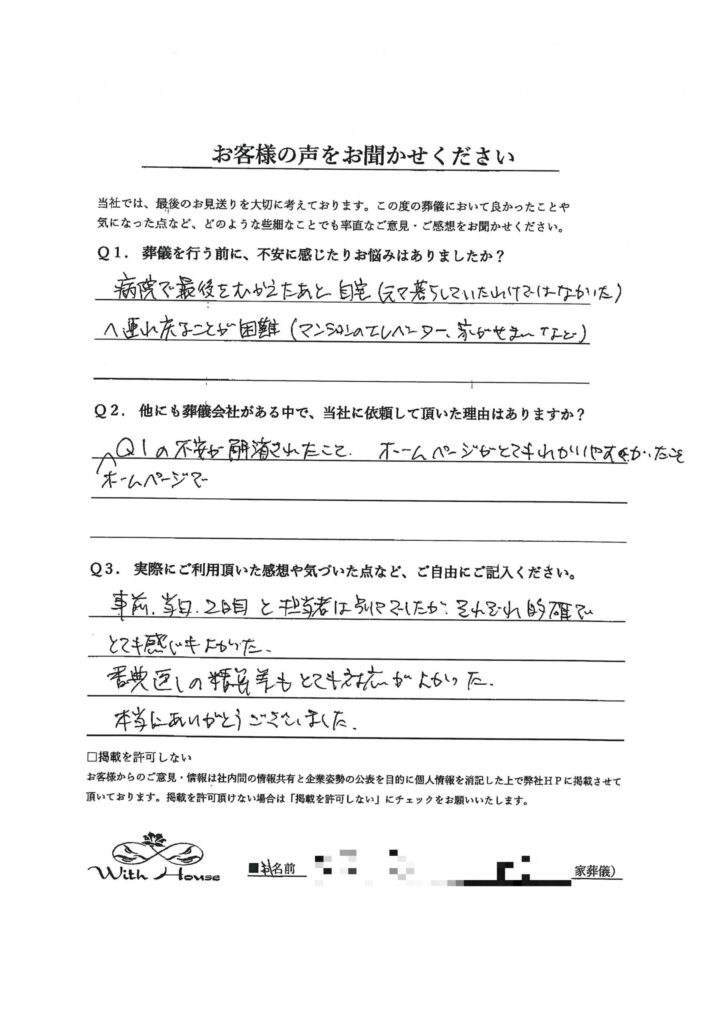 お客様の声をお聞かせください
当社では、最後のお見送りを大切に考えております。この度の葬儀において良かったことや
気になった点など、どのような些細なことでも率直なご意見・ご感想をお聞かせください。
Q1．葬儀を行う前に、不安に感じたりお悩みはありましたか？
病院で最後をむかえたあと 自宅（元々暮らしていたわけではなかった）
へ連れ戻すことが困難（マンションのエレベーター、家がせまいなど）
Q2．他にも葬儀会社がある中で、当社に依頼して頂いた理由はありますか？
Q1の不安が解消されたこと. ホームページがとてもわかりやすかったこと
ホームページで
Q3．実際にご利用頂いた感想や気づいた点など、ご自由にご記入ください。
事前、当日、2日目と担当者は別々でしたが、それぞれ的確で
とても感じもよかった.
香典返しの精算等もとても対応がよかった.
本当にありがとうございました.
□掲載を許可しない
お客様からのご意見・情報は社内間の情報共有と企業姿勢の公表を目的に個人情報を消記した上で弊社HPに掲載させて
頂いております。掲載を許可頂けない場合は「掲載を許可しない」にチェックをお願いいたします。
With House
■お名前
家葬儀）